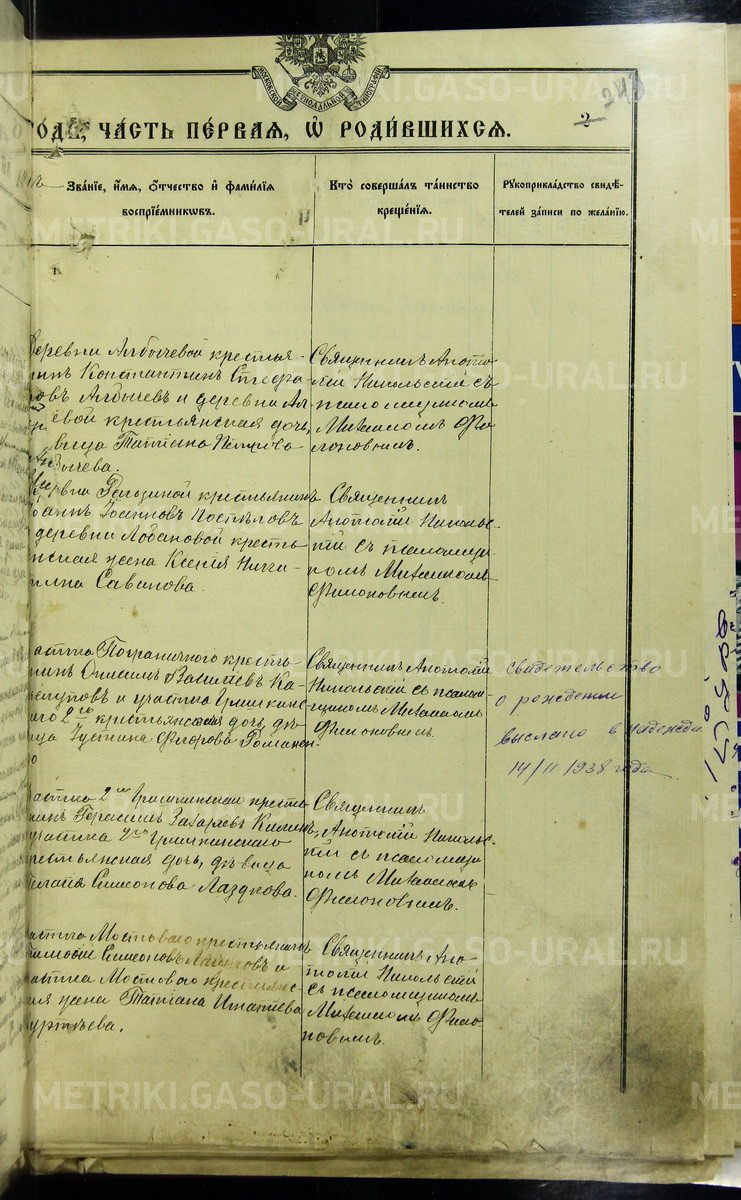 МОСКОВСКОЙ СѴНОДАЛЬНОЙ ТИПОГРАФІИ
2 248
ГОДѢ, ЧАСТЬ ПЕРВАЯ, Ѡ РОДИВШИХСЯ.
Званіе, имя, отчество и фамилія
воспріемниковъ.
Кто совершалъ таинство
крещенія.
Рукоприкладство свидѣ-
телей записи по желанію.
деревни Алдычевой крестья-
нинъ Константинъ Стефа
новъ Алдычевъ и деревни Ал
евой крестьянская дочь,
вица Татіана Петрова
Алдычева.
Священникъ Анато
лій Никольскій съ
псаломщикомъ
Михаиломъ Фи
моновымъ.
крестьянинъ
оаннъ Іоанновъ Поспѣловъ
деревни Лобановой кресть
нская жена Ксенія Ники
Саванова.
Священникъ
Анатолій Николь
скій съ псаломщи
комъ Михаиломъ
Филоновымъ.
частка Пограничнаго кресть
нинъ Онисимъ Васильевъ Ка
и участка Гришкинс
аго 2го крестьянская дочь, дѣ
ица Іустина Федорова Романен-
о
Священникъ Анатолій
Никольскій съ псалом
щикомъ Михаиломъ
Филоновымъ.
свидетельство
о рождении
выслано в надежди
14/II 1938 года
частка 2го Гришкинскаго кресть
нинъ Герасимъ Захаровъ Килинъ,
участка 2го Гришкинскаго
крестьянская дочь, дѣвица
Симеонова Лаздкова.
Священникъ
Анатолій Николь
скій съ псаломщи
комъ Михаиломъ
Филоновымъ.
частка Мостоваго крестьянинъ
Симеоновъ и
частка Мостоваго крестьянс
ая жена Татіана Игнатіева
Священникъ Ана
толій Никольскій
съ псаломщикомъ
Михаиломъ Фило
новымъ.
METRIKI.GASO-URAL.RU